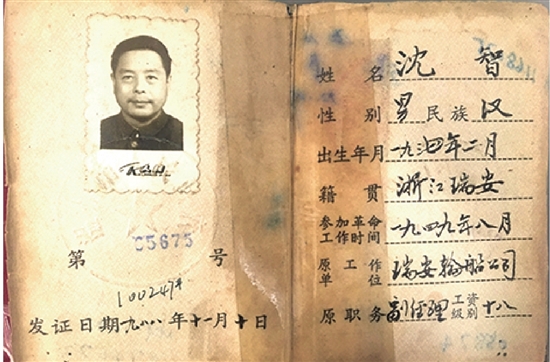 第 C5675 号
发证日期 一九八八年十一月十日
姓名 沈智
性别 男 民族 汉
出生年月
籍贯 浙江瑞安
参加革命 一九四九年八月
工作时间
原工作 瑞安轮船公司
单位
原职务 副经理 工资 十八
级别